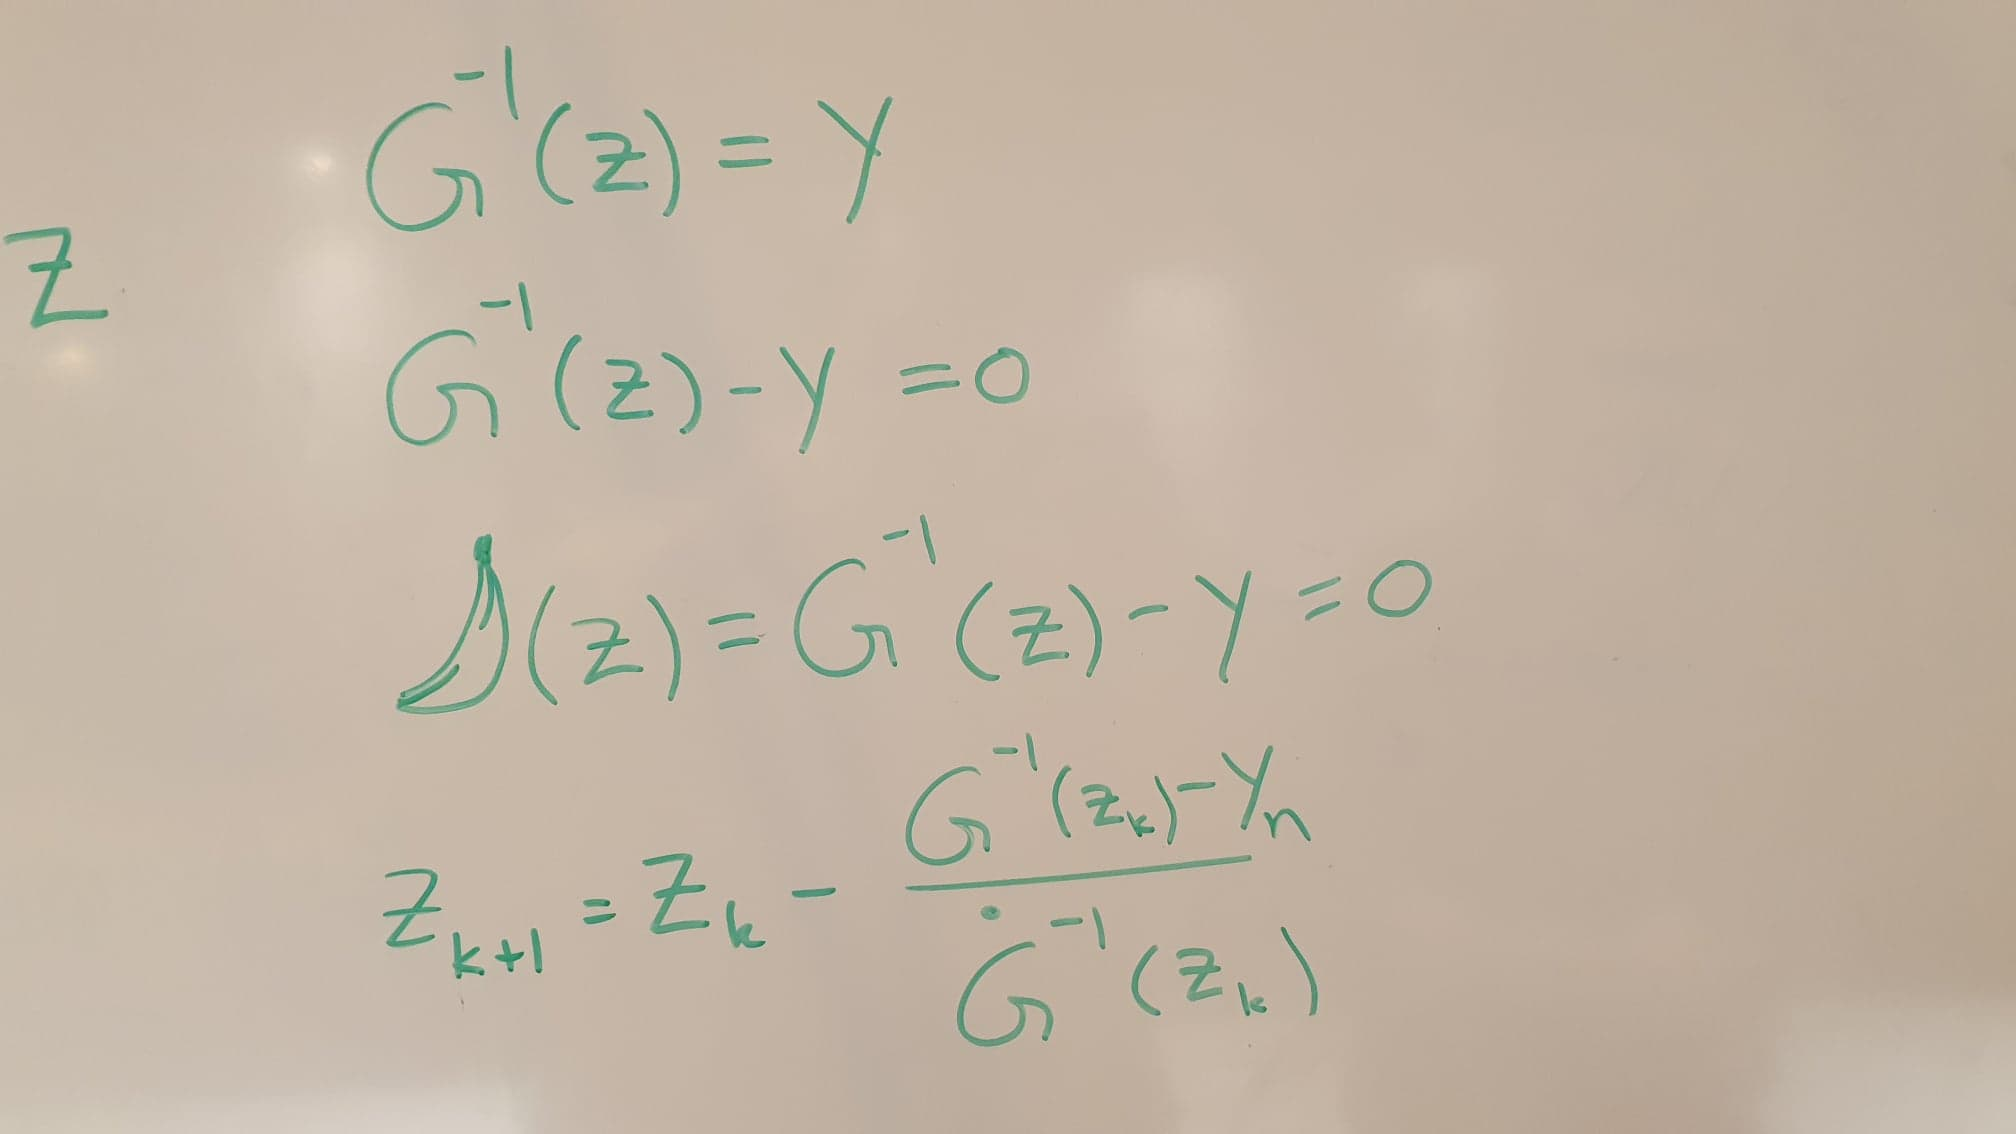 G⁻¹(z) = y
z
G⁻¹(z) - y = 0
🍌(z) = G⁻¹(z) - y = 0
z_{k+1} = z_k - \frac{G⁻¹(z_k) - y_n}{Ġ⁻¹(z_k)}